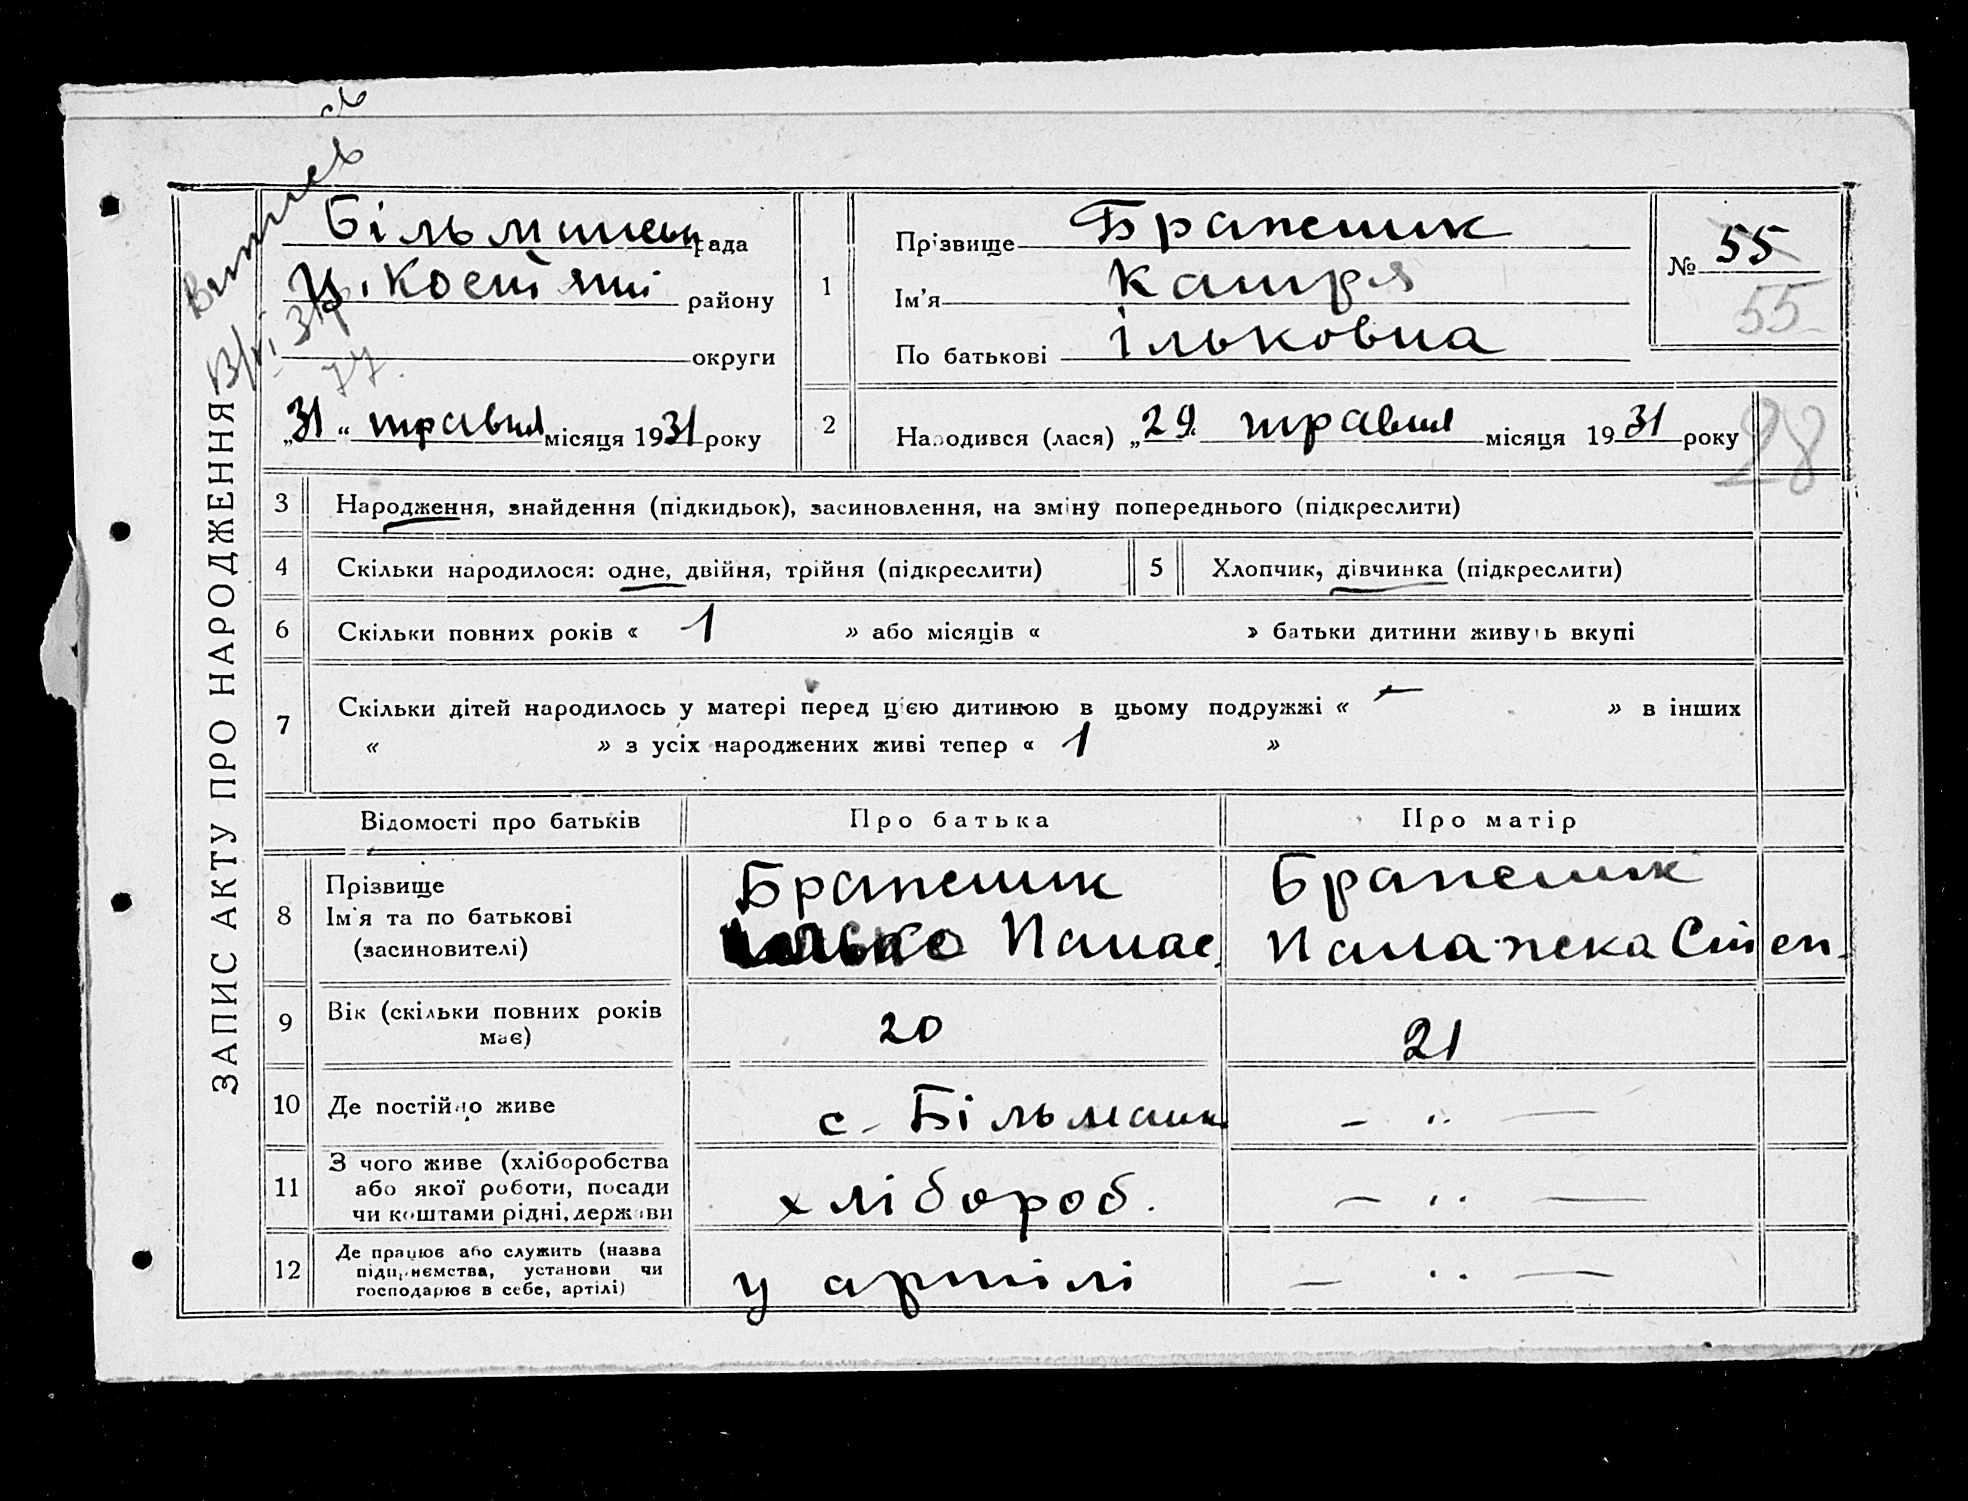 ЗАПИС АКТУ ПРО НАРОДЖЕННЯ
Більманськ рада
району
округи
„31" травня місяця 1931 року
1
Прізвище Брапешик
Ім'я Катря
По батькові Ільковна
№ 55
55
2
Народився (лася) „29" травня місяця 1931 року
28
3 Народження, знайдення (підкидьок), засиновлення, на зміну попереднього (підкреслити)
4 Скільки народилося: одне, двійня, трійня (підкреслити)
5 Хлопчик, дівчинка (підкреслити)
6 Скільки повних років « 1 » або місяців « » батьки дитини живуть вкупі
7 Скільки дітей народилось у матері перед цією дитиною в цьому подружжі « – » в інших
« » з усіх народжених живі тепер « 1 »
Відомості про батьків Про батька Про матір
8
Прізвище
Ім'я та по батькові
(засиновителі)
Брапешик
Ілько Панас.
Брапешик
Палажека Степ.
9
Вік (скільки повних років
має)
20
21
10 Де постійно живе
с. Більманк
– " –
11
З чого живе (хліборобства
або якої роботи, посади
чи коштами рідні, держави
хлібороб.
– " –
12
Де працює або служить (назва
підприємства, установи чи
господарює в себе, артілі)
у артілі
– " –